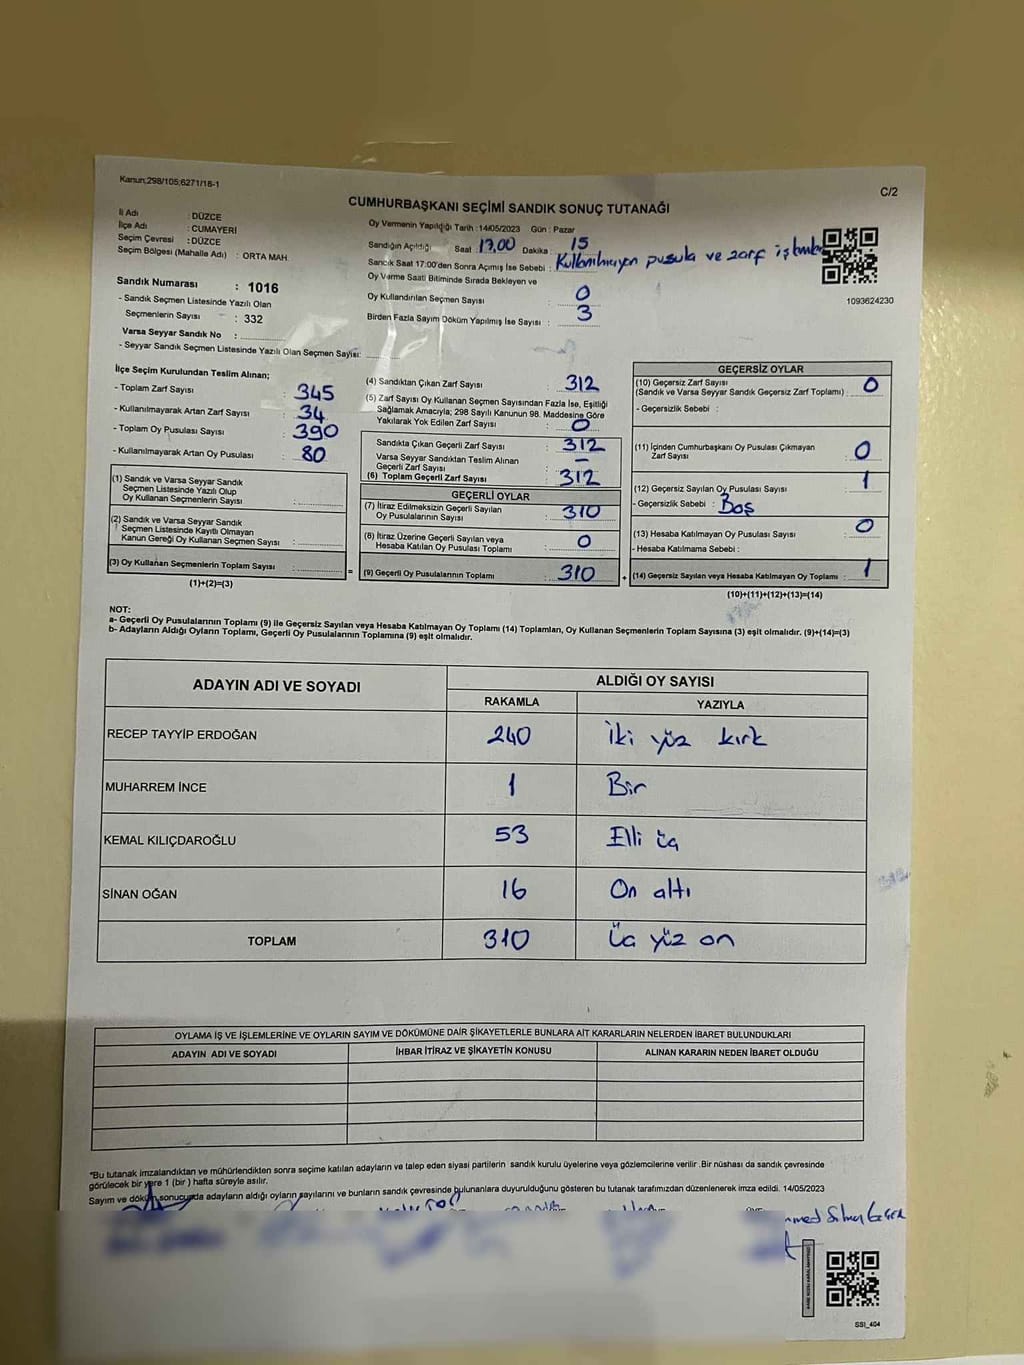 Kanun;298/105;6271/18-1
C/2
CUMHURBAŞKANI SEÇİMİ SANDIK SONUÇ TUTANAĞI
İl Adı : DÜZCE
İlçe Adı : CUMAYERİ
Seçim Çevresi : DÜZCE
Seçim Bölgesi (Mahalle Adı) : ORTA MAH.
Oy Vermenin Yapıldığı Tarih : 14/05/2023 Gün : Pazar
Sandığın Açıldığı Saat 17,00 Dakika : 15
Sandık Saat 17:00'den Sonra Açımış İse Sebebi : Kullanılmayan pusula ve zarf
Oy Verme Saati Bitiminde Sırada Bekleyen ve
Oy Kullandırılan Seçmen Sayısı : 0
Birden Fazla Sayım Döküm Yapılmış İse Sayısı : 3
1093624230
Sandık Numarası : 1016
- Sandık Seçmen Listesinde Yazılı Olan
Seçmenlerin Sayısı : 332
Varsa Seyyar Sandık No :
- Seyyar Sandık Seçmen Listesinde Yazılı Olan Seçmen Sayısı:
İlçe Seçim Kurulundan Teslim Alınan;
- Toplam Zarf Sayısı : 345
- Kullanılmayarak Artan Zarf Sayısı : 34
- Toplam Oy Pusulası Sayısı : 390
- Kullanılmayarak Artan Oy Pusulası : 80
(1) Sandık ve Varsa Seyyar Sandık
Seçmen Listesinde Yazılı Olup
Oy Kullanan Seçmenlerin Sayısı :
(2) Sandık ve Varsa Seyyar Sandık
Seçmen Listesinde Kayıtlı Olmayan
Kanun Gereği Oy Kullanan Seçmen Sayısı :
(3) Oy Kullanan Seçmenlerin Toplam Sayısı :
(1)+(2)=(3)
(4) Sandıktan Çıkan Zarf Sayısı : 312
(5) Zarf Sayısı Oy Kullanan Seçmen Sayısından Fazla İse, Eşitliği
Sağlamak Amacıyla; 298 Sayılı Kanunun 98. Maddesine Göre
Yakılarak Yok Edilen Zarf Sayısı : 0
Sandıkta Çıkan Geçerli Zarf Sayısı : 312
Varsa Seyyar Sandıktan Teslim Alınan
Geçerli Zarf Sayısı : -
(6) Toplam Geçerli Zarf Sayısı : 312
GEÇERLİ OYLAR
(7) İtiraz Edilmeksizin Geçerli Sayılan
Oy Pusulalarının Sayısı : 310
(8) İtiraz Üzerine Geçerli Sayılan veya
Hesaba Katılan Oy Pusulası Toplamı : 0
(9) Geçerli Oy Pusulalarının Toplamı : 310
GEÇERSİZ OYLAR
(10) Geçersiz Zarf Sayısı
(Sandık ve Varsa Seyyar Sandık Geçersiz Zarf Toplamı) : 0
- Geçersizlik Sebebi :
(11) İçinden Cumhurbaşkanı Oy Pusulası Çıkmayan
Zarf Sayısı : 0
(12) Geçersiz Sayılan Oy Pusulası Sayısı : 1
- Geçersizlik Sebebi : Boş
(13) Hesaba Katılmayan Oy Pusulası Sayısı : 0
- Hesaba Katılmama Sebebi :
(14) Geçersiz Sayılan veya Hesaba Katılmayan Oy Toplamı : 1
(10)+(11)+(12)+(13)=(14)
NOT:
a- Geçerli Oy Pusulalarının Toplamı (9) ile Geçersiz Sayılan veya Hesaba Katılmayan Oy Toplamı (14) Toplamları, Oy Kullanan Seçmenlerin Toplam Sayısına (3) eşit olmalıdır. (9)+(14)=(3)
b- Adayların Aldığı Oyların Toplamı, Geçerli Oy Pusulalarının Toplamına (9) eşit olmalıdır.
ADAYIN ADI VE SOYADI
ALDIĞI OY SAYISI
RAKAMLA YAZIYLA
RECEP TAYYİP ERDOĞAN 240 İki yüz kırk
MUHARREM İNCE 1 Bir
KEMAL KILIÇDAROĞLU 53 Elli üç
SİNAN OĞAN 16 On altı
TOPLAM 310 Üç yüz on
OYLAMA İŞ VE İŞLEMLERİNE VE OYLARIN SAYIM VE DÖKÜMÜNE DAİR ŞİKAYETLERLE BUNLARA AİT KARARLARIN NELERDEN İBARET BULUNDUKLARI
ADAYIN ADI VE SOYADI İHBAR İTİRAZ VE ŞİKAYETİN KONUSU ALINAN KARARIN NEDEN İBARET OLDUĞU
*Bu tutanak imzalandıktan ve mühürlendikten sonra seçime katılan adayların ve talep eden siyasi partilerin sandık kurulu üyelerine veya gözlemcilerine verilir .Bir nüshası da sandık çevresinde
görülecek bir yere 1 (bir ) hafta süreyle asılır.
Sayım ve döküm sonucunda adayların aldığı oyların sayılarını ve bunların sandık çevresinde bulunanlara duyurulduğunu gösteren bu tutanak tarafımızdan düzenlenerek imza edildi. 14/05/2023
SSI_404